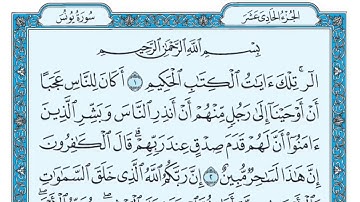 الجزء الحادي عشر
سورة يونس
بِسْمِ اللَّهِ الرَّحْمَٰنِ الرَّحِيمِ
الٓرۚ تِلۡكَ ءَايَٰتُ ٱلۡكِتَٰبِ ٱلۡحَكِيمِ ١ أَكَانَ لِلنَّاسِ عَجَبًا
أَنۡ أَوۡحَيۡنَآ إِلَىٰ رَجُلٖ مِّنۡهُمۡ أَنۡ أَنذِرِ ٱلنَّاسَ وَبَشِّرِ ٱلَّذِينَ
ءَامَنُوٓاْ أَنَّ لَهُمۡ قَدَمَ صِدۡقٍ عِندَ رَبِّهِمۡۗ قَالَ ٱلۡكَٰفِرُونَ
إِنَّ هَٰذَا لَسَٰحِرٞ مُّبِينٌ ٢ إِنَّ رَبَّكُمُ ٱللَّهُ ٱلَّذِي خَلَقَ ٱلسَّمَٰوَٰتِ